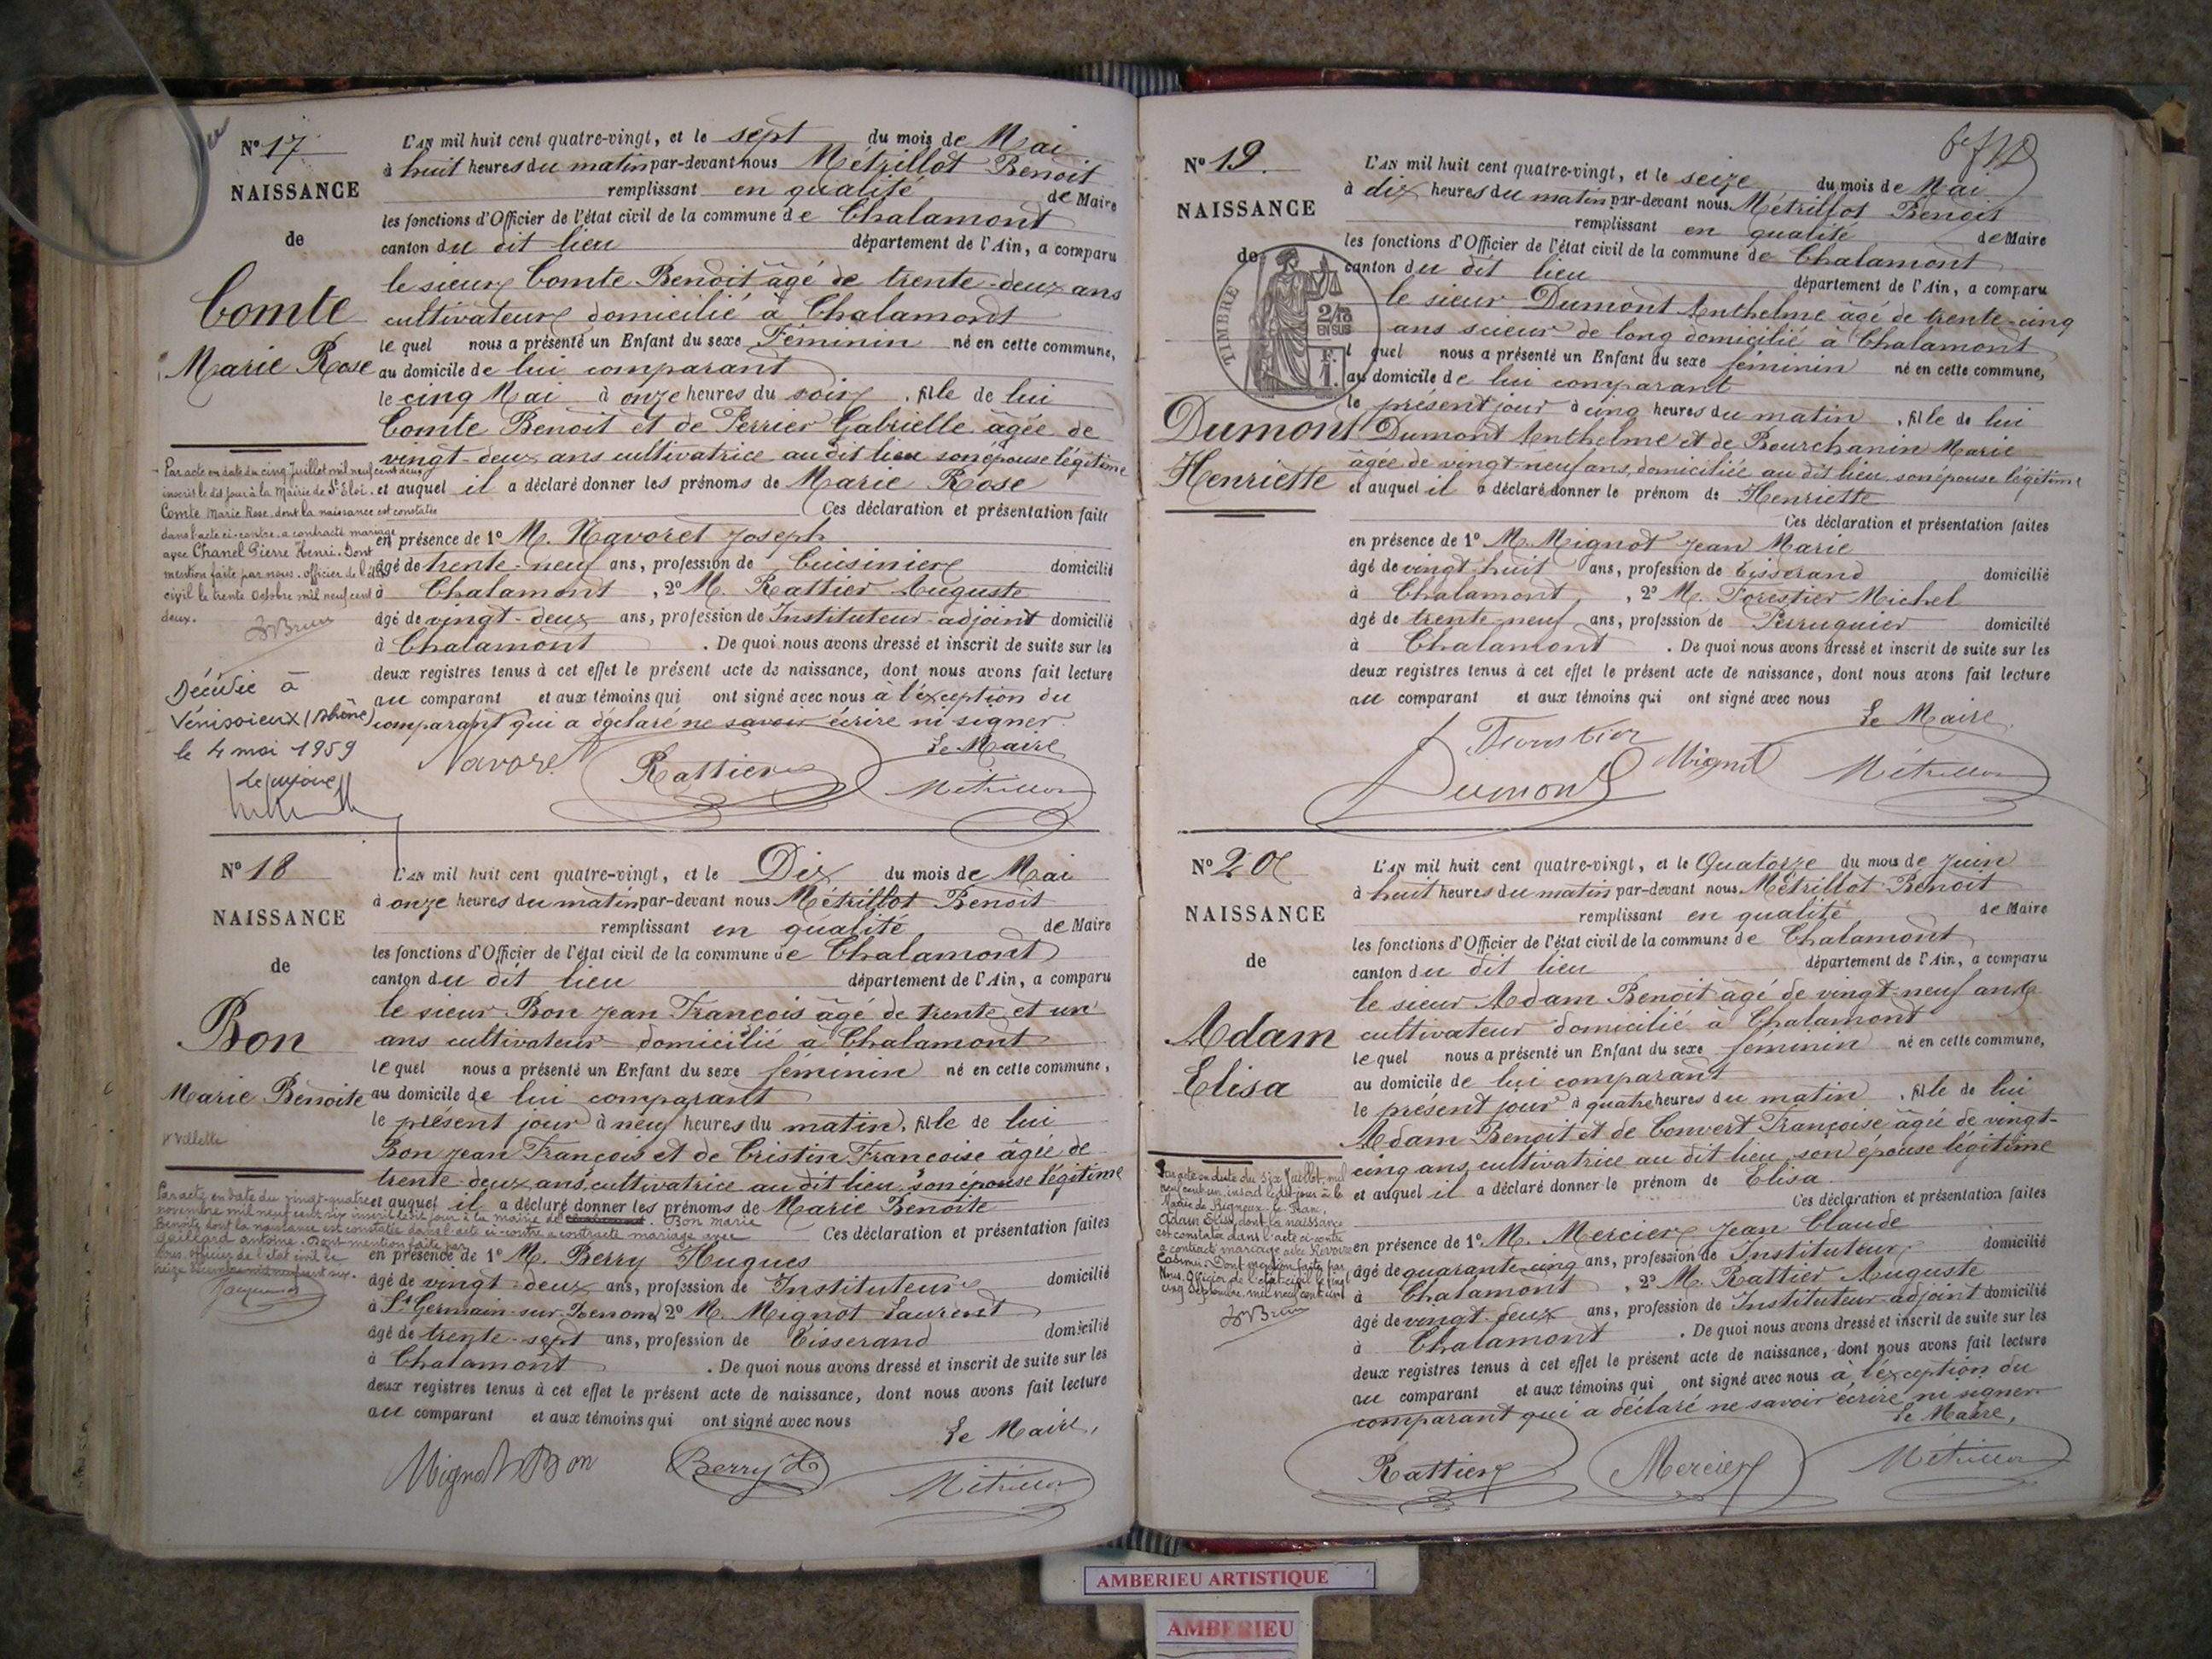 N° 17
NAISSANCE
de
Comte
Marie Rose
L'AN mil huit cent quatre-vingt, et le sept du mois de Mai
à huit heures du matin par-devant nous Métrillot Benoit
remplissant en qualité de Maire
les fonctions d'Officier de l'état civil de la commune de Chalamont
canton du dit lieu département de l'Ain, a comparu
le sieur Comte Benoit âgé de trente-deux ans
cultivateur domicilié à Chalamont
lequel nous a présenté un Enfant du sexe Féminin né en cette commune,
au domicile de lui comparant
le cinq Mai à onze heures du soir, fille de lui
Comte Benoit et de Perrier Gabrielle âgée de
vingt-deux ans cultivatrice au dit lieu son épouse légitime
et auquel il a déclaré donner les prénoms de Marie Rose
Ces déclaration et présentation faite
en présence de 1° M. Navoret Joseph
âgé de trente-neuf ans, profession de Cuisinier domicilié
à Chalamont, 2° M. Rattier Auguste
âgé de vingt-deux ans, profession de Instituteur-adjoint domicilié
à Chalamont. De quoi nous avons dressé et inscrit de suite sur les
deux registres tenus à cet effet le présent acte de naissance, dont nous avons fait lecture
au comparant et aux témoins qui ont signé avec nous à l'exception du
comparant qui a déclaré ne savoir écrire ni signer.
Le Maire
Navoret Rattier Métrillot
Par acte en date du cinq Juillet mil neuf cent deux
inscrit le dit jour à la Mairie de St Eloi.
Comte Marie Rose, dont la naissance est constatée
dans l'acte ci-contre a contracté mariage
avec Chanel Pierre Henri. Dont
mention faite par nous, officier de l'état
civil le trente Octobre mil neuf cent
deux.
Décédée à
Vénissieux (Rhône)
le 4 mai 1959
N° 18
NAISSANCE
de
Bon
Marie Benoite
V Villette
L'AN mil huit cent quatre-vingt, et le Dix du mois de Mai
à onze heures du matin par-devant nous Métrillot Benoit
remplissant en qualité de Maire
les fonctions d'Officier de l'état civil de la commune de Chalamont
canton du dit lieu département de l'Ain, a comparu
le sieur Bon Jean François âgé de trente et un
ans cultivateur domicilié à Chalamont
lequel nous a présenté un Enfant du sexe féminin né en cette commune,
au domicile de lui comparant
le présent jour à neuf heures du matin, fille de lui
Bon Jean François et de Cristin Françoise âgée de
trente-deux ans, cultivatrice au dit lieu, son épouse légitime
et auquel il a déclaré donner les prénoms de Marie Benoite
Ces déclaration et présentation faites
en présence de 1° M. Berry Hugues
âgé de vingt-deux ans, profession de Instituteur domicilié
à St Germain-sur-Renom, 2° M. Mignot Laurent
âgé de trente-sept ans, profession de Tisserand domicilié
à Chalamont. De quoi nous avons dressé et inscrit de suite sur les
deux registres tenus à cet effet le présent acte de naissance, dont nous avons fait lecture
au comparant et aux témoins qui ont signé avec nous
Le Maire,
Mignot Bon Berry H Métrillot
Par acte en date du vingt-quatre
novembre mil neuf cent six inscrit le dit jour à la mairie de Bon Marie
Benoite dont la naissance est constatée dans l'acte ci-contre a contracté mariage avec
Gaillard Antoine. Dont mention faite par
Nous, officier de l'état civil le
seize mil neuf cent six.
N° 19.
NAISSANCE
de
Dumont
Henriette
TIMBRE
2/10
EN SUS
L'AN mil huit cent quatre-vingt, et le seize du mois de Mai
à dix heures du matin par-devant nous Métrillot Benoit
remplissant en qualité de Maire
les fonctions d'Officier de l'état civil de la commune de Chalamont
canton du dit lieu département de l'Ain, a comparu
le sieur Dumont Anthelme âgé de trente-cinq
ans scieur de long domicilié à Chalamont
lequel nous a présenté un Enfant du sexe féminin né en cette commune,
au domicile de lui comparant
le présent jour à cinq heures du matin, fille de lui
Dumont Anthelme et de Bourchanin Marie
âgée de vingt-neuf ans, domiciliée au dit lieu, son épouse légitime
et auquel il a déclaré donner le prénom de Henriette
Ces déclaration et présentation faites
en présence de 1° M. Mignot Jean Marie
âgé de vingt-huit ans, profession de Tisserand domicilié
à Chalamont, 2° M. Forestier Michel
âgé de trente-neuf ans, profession de Perruquier domicilié
à Chalamont. De quoi nous avons dressé et inscrit de suite sur les
deux registres tenus à cet effet le présent acte de naissance, dont nous avons fait lecture
au comparant et aux témoins qui ont signé avec nous
Le Maire.
Dumont Mignot Métrillot
N° 20
NAISSANCE
de
Adam
Elisa
L'AN mil huit cent quatre-vingt, et le Quatorze du mois de Juin
à huit heures du matin par-devant nous Métrillot Benoit
remplissant en qualité de Maire
les fonctions d'Officier de l'état civil de la commune de Chalamont
canton du dit lieu département de l'Ain, a comparu
le sieur Adam Benoit âgé de vingt-neuf ans
cultivateur domicilié à Chalamont
lequel nous a présenté un Enfant du sexe féminin né en cette commune,
au domicile de lui comparant
le présent jour à quatre heures du matin, fille de lui
Adam Benoit et de Convert Françoise âgée de vingt-
cinq ans, cultivatrice au dit lieu, son épouse légitime
et auquel il a déclaré donner le prénom de Elisa
Ces déclaration et présentation faites
en présence de 1° M. Mercier Jean Claude
âgé de quarante-cinq ans, profession de Instituteur domicilié
à Chalamont, 2° M. Rattier Auguste
âgé de vingt-deux ans, profession de Instituteur-adjoint domicilié
à Chalamont. De quoi nous avons dressé et inscrit de suite sur les
deux registres tenus à cet effet le présent acte de naissance, dont nous avons fait lecture
au comparant et aux témoins qui ont signé avec nous à l'exception du
comparant qui a déclaré ne savoir écrire ni signer
Le Maire,
Rattier Mercier Métrillot
Par acte en date du six Juillet mil
neuf cent un, inscrit le dit jour à la
Mairie de Rigneux-le-Franc,
Adam Elisa, dont la naissance
est constatée dans l'acte ci-contre
a contracté mariage avec
Casimir. Dont mention faite par
Nous, officier de l'état civil le vingt
cinq Septembre mil neuf cent un
AMBERIEU ARTISTIQUE
AMBERIEU